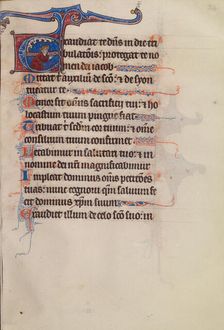 Exaudiat te dns in die tri
bulatois: protegat te no
men dei iacob
Mittat t auxiliu de sco: & de syon
tueatur te
Memor sit ois sacrificii tui: & ho
locaustum tuum pingue fiat
Tribuat t scdm cor tuum: & omne
consilium tuum confirmet
Letabimur in salutari tuo: & in
nomine dei nri magnificabimur
Impleat dominus oms petitiões
tuas: nunc cognoui qm saluum fe
cit dominus xpm suum
Exaudiet illum de celo sco suo: in